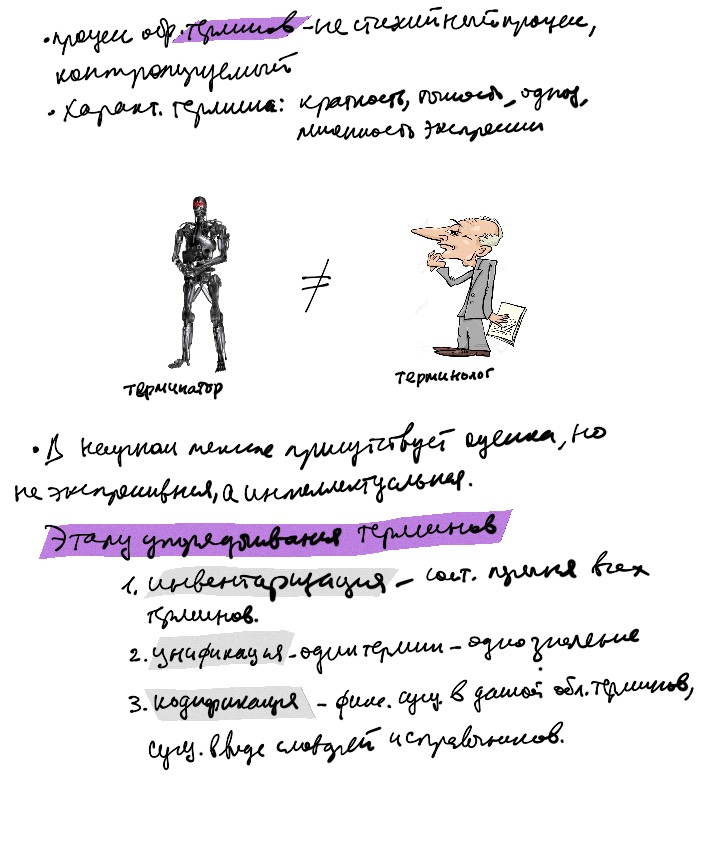 • процесс обр. терминов – не стихийный процесс,
контролируемый
• Характ. термина: краткость, точность, одноз,
экспрессии
≠
терминатор
терминолог
• В научном тексте присутствует оценка, но
не экспрессивная, а интеллектуальная.
Этапы упорядочивания терминов
1. инвентаризация – сост. всех
терминов.
2. унификация – один термин – одно значение
3. кодификация – фикс. сущ. в данной обл. терминов,
сущ. в виде словарей и справочников.